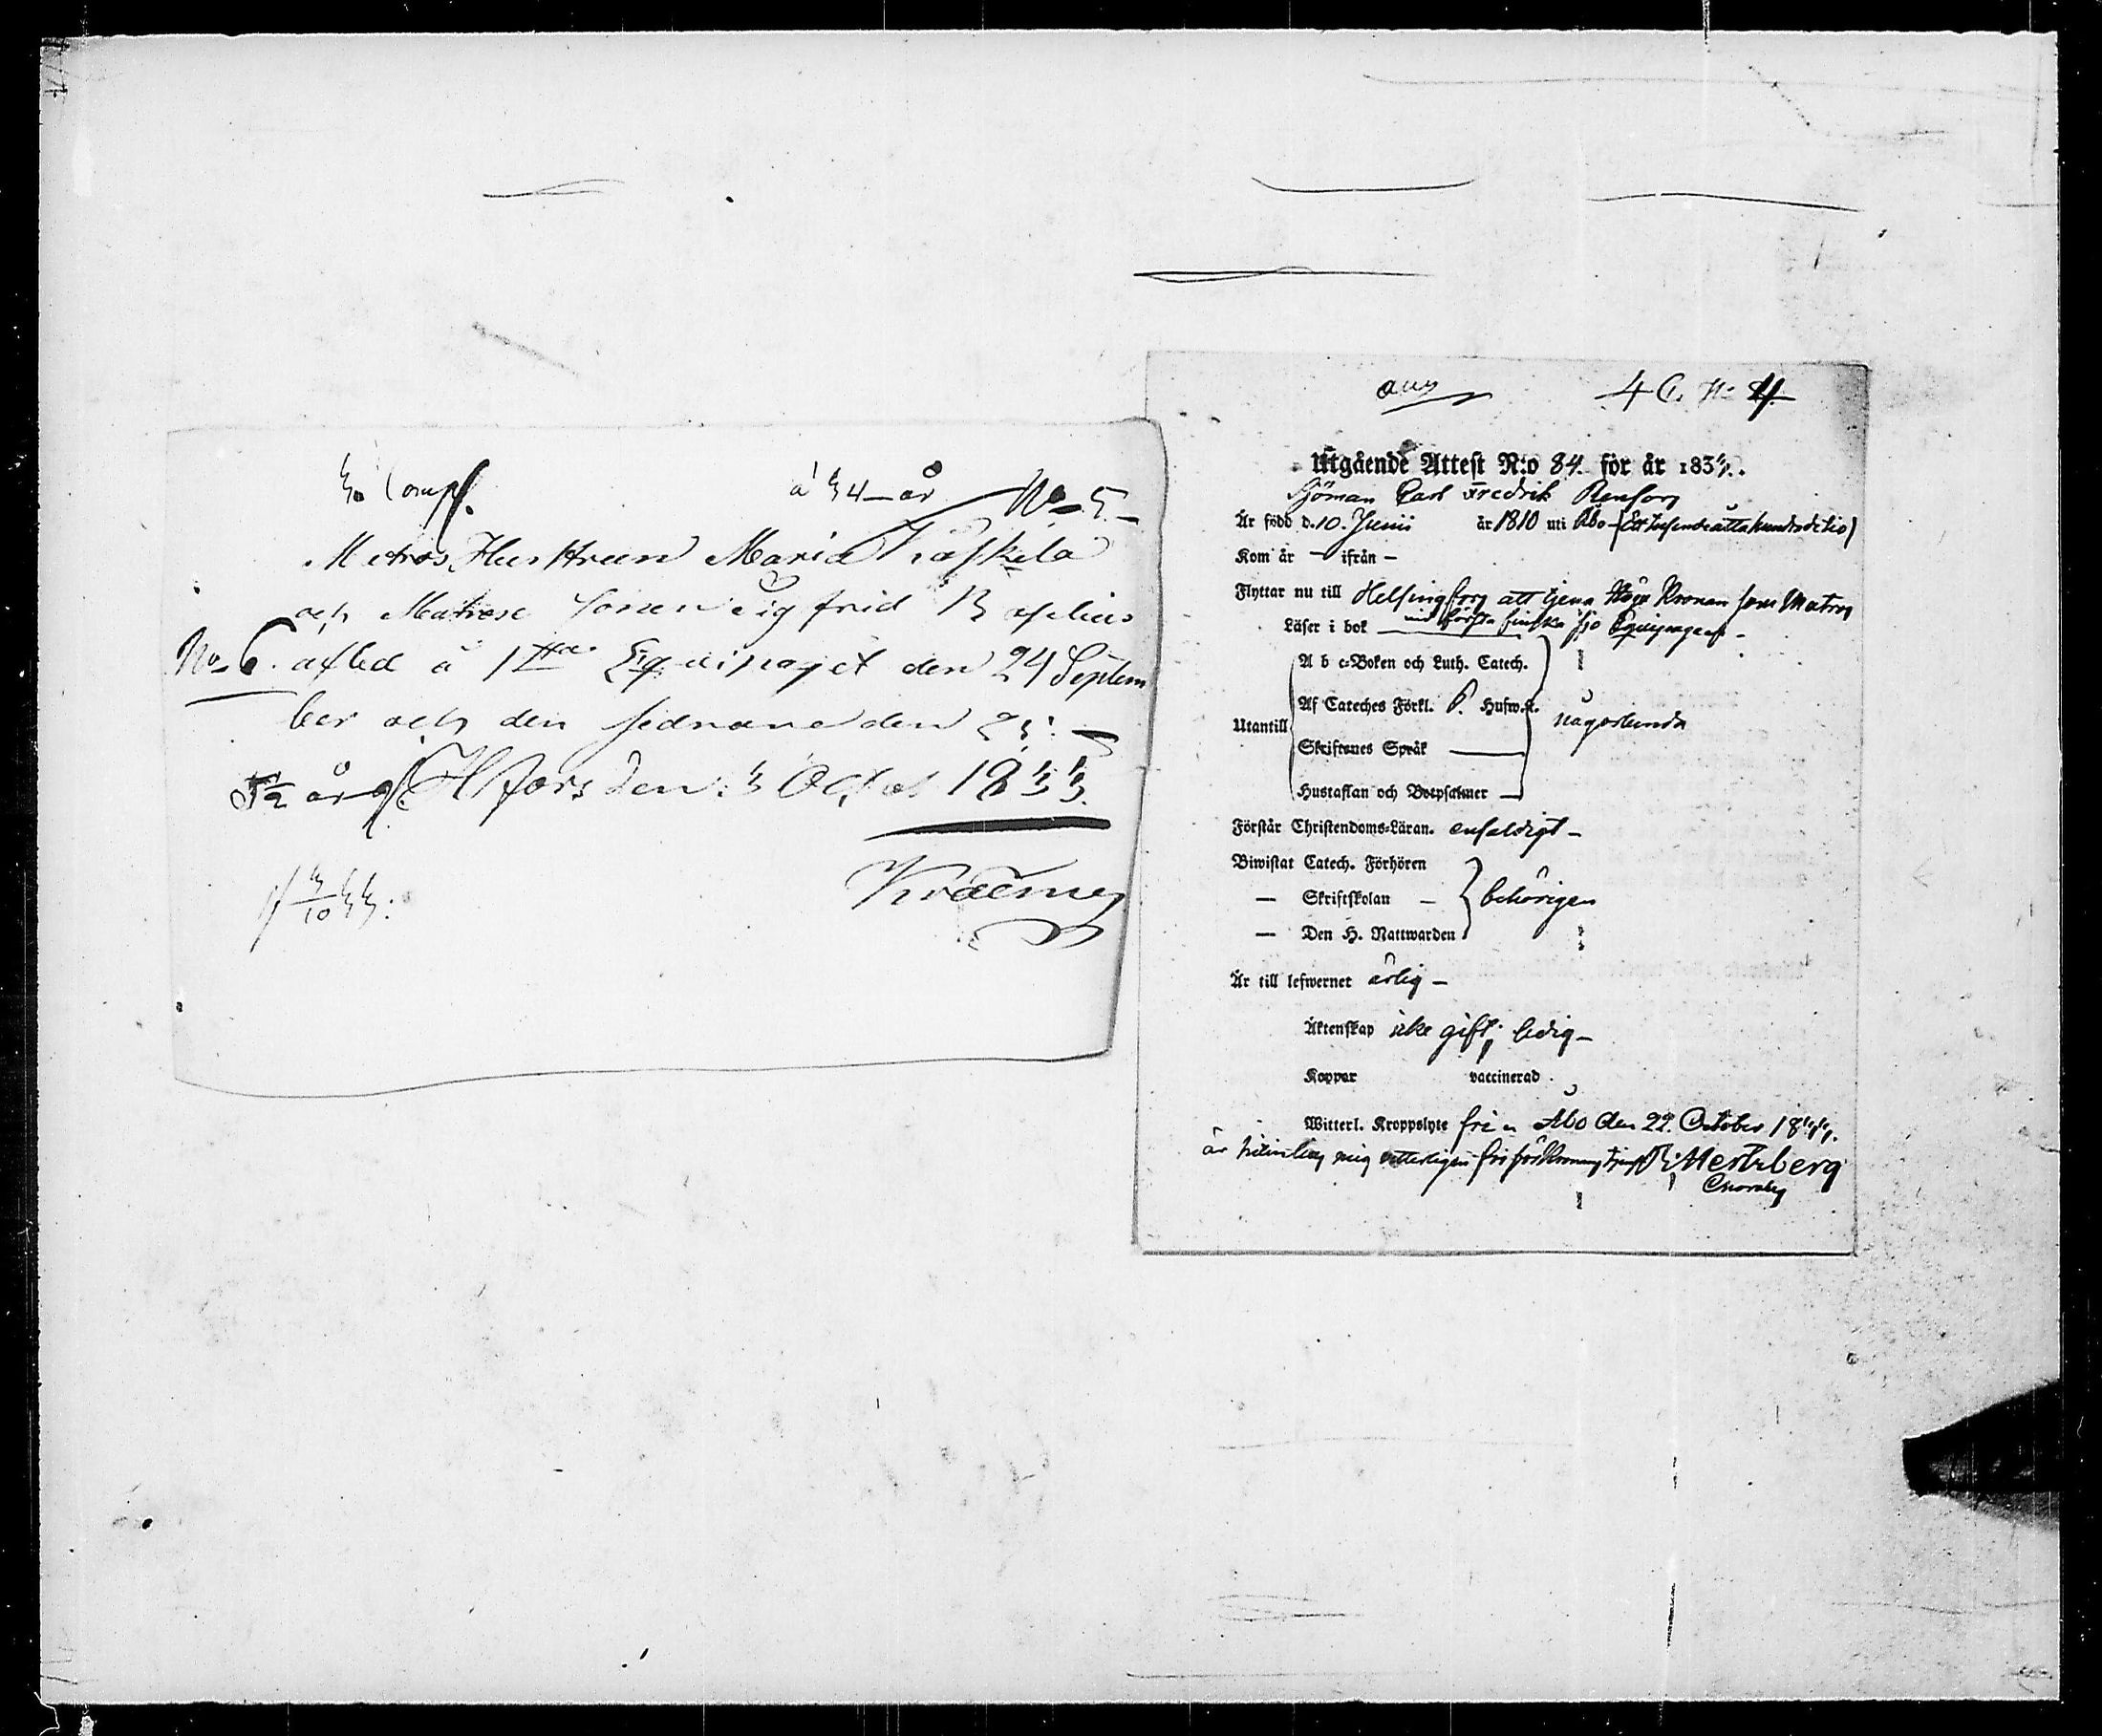 3. Comp. à 34 år No 5.
Matros Hustrun Maria Kaskela
och Matross Sonen Sigfrid
No 6. afled å 1sta Equipaget den 24 Septem
ber och den sednare den 25:
½ år g. H.fors den 3 Octob 1833.
Kraemer
3/10 33:
4 C. N: 4.
Utgående Attest N:o 84. för år 1833.
Sjöman Carl Fredrik Renfors
Är född d. 10. Junii år 1810 uti Åbo - (Ett tusende åttahundradetio)
Kom år - ifrån -
Flyttar nu till Helsingfors att tjena Höga Kronan som Matros
vid första finska sjö Equipaget -
Läser i bok
A b c-Boken och Luth. Catech.
Af Cateches Förkl. Hufw.st.
någorlunda
Utantill
Skriftenes Språk
Hustaflan och Botpsalmer
Förstår Christendoms-Läran. enfaldigt -
Biwistat Catech. Förhören
— Skriftskolan — behörigen
— Den H. Nattwarden
Är till lefwernet ärlig -
Äktenskap icke gift, ledig -
Koppor vaccinerad
Witterl. Kroppslyte fri. Åbo den 22. October 1833.
är mig vitterligen fri för